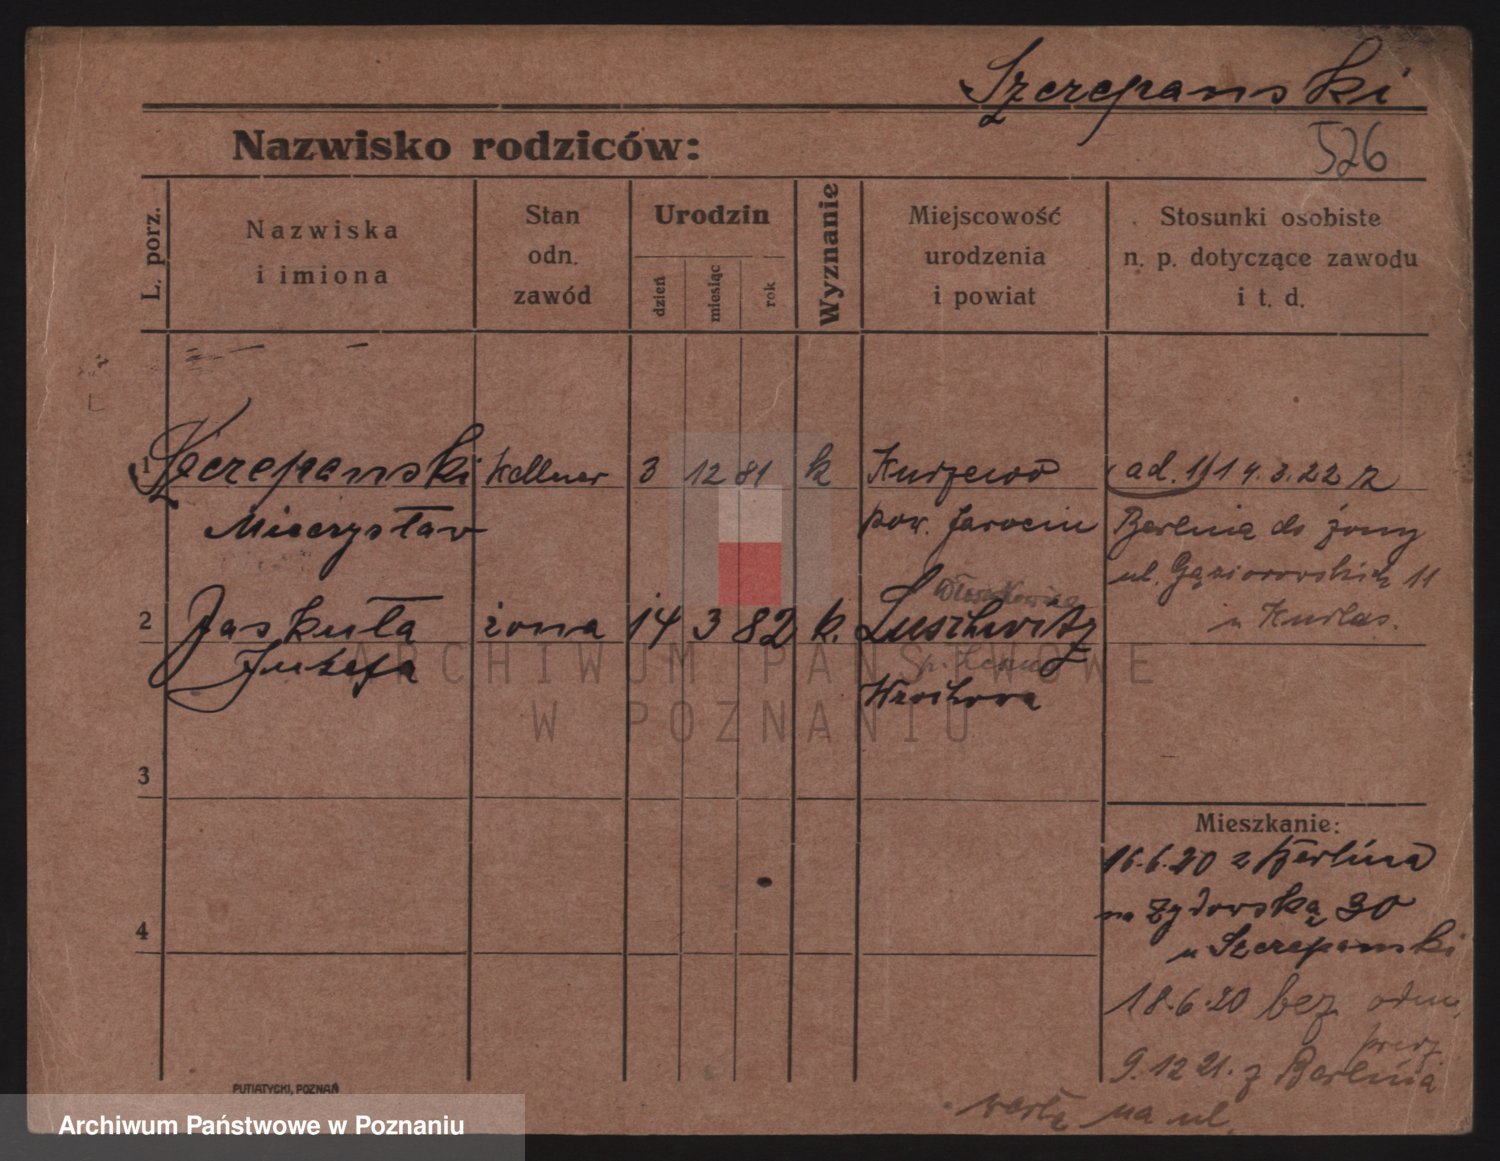 Szczepanski
Nazwisko rodziców:
526
L. porz.
Nazwiska
i imiona
Stan
odn.
zawód
Urodzin
dzień
miesiąc
rok
Wyznanie
Miejscowość
urodzenia
i powiat
Stosunki osobiste
n. p. dotyczące zawodu
i t. d.
1 Szczepanski Kellner 3 12 81 k ad. 1) 14.3.22 z
Mieczysław pow. Jarocin Berlina do żony
ul. Gąsiorowskich 11
2 Jaskuła żona 14 3 82 k. Luschwitz
Józefa
u
ARCHIWUM PAŃSTWOWE
W POZNANIU
3
4
Mieszkanie:
16.6.20 z Berlina
na Żydowską 30
u Szczepanski
18.6.20 bez
9.12.21. z Berlina
na ul.
PUTIATYCKI, POZNAŃ
Archiwum Państwowe w Poznaniu